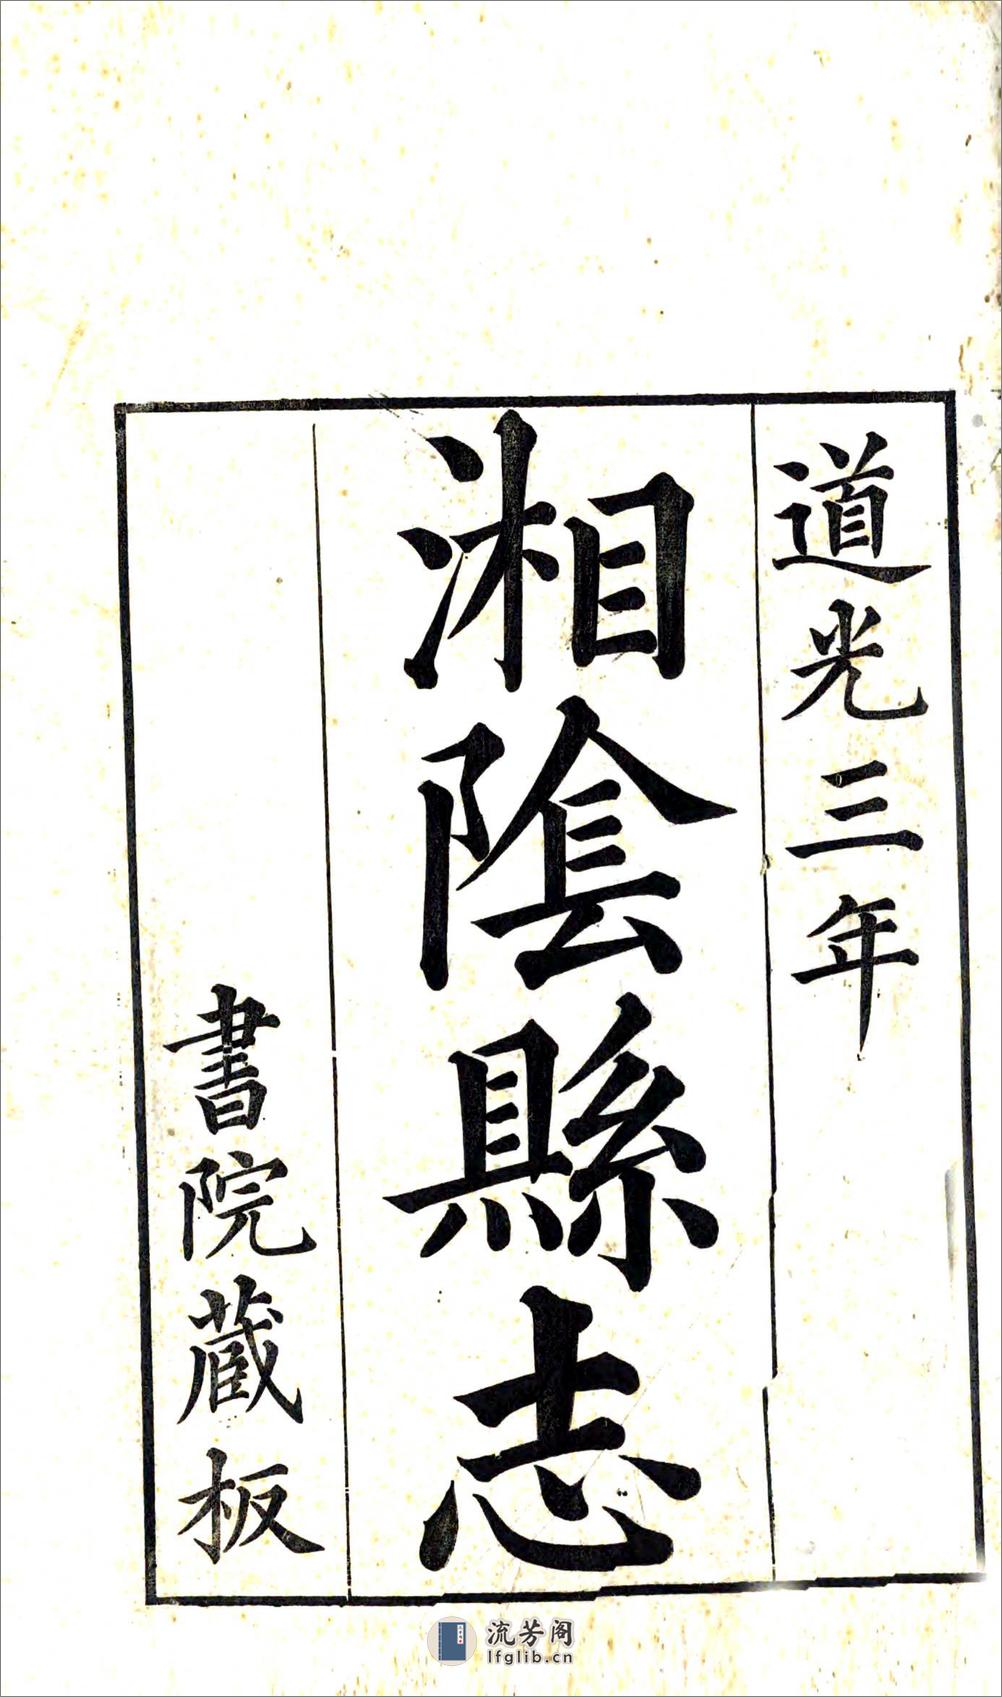 道光三年
湘陰縣志
書院藏板
流芳阁
lfglib.cn